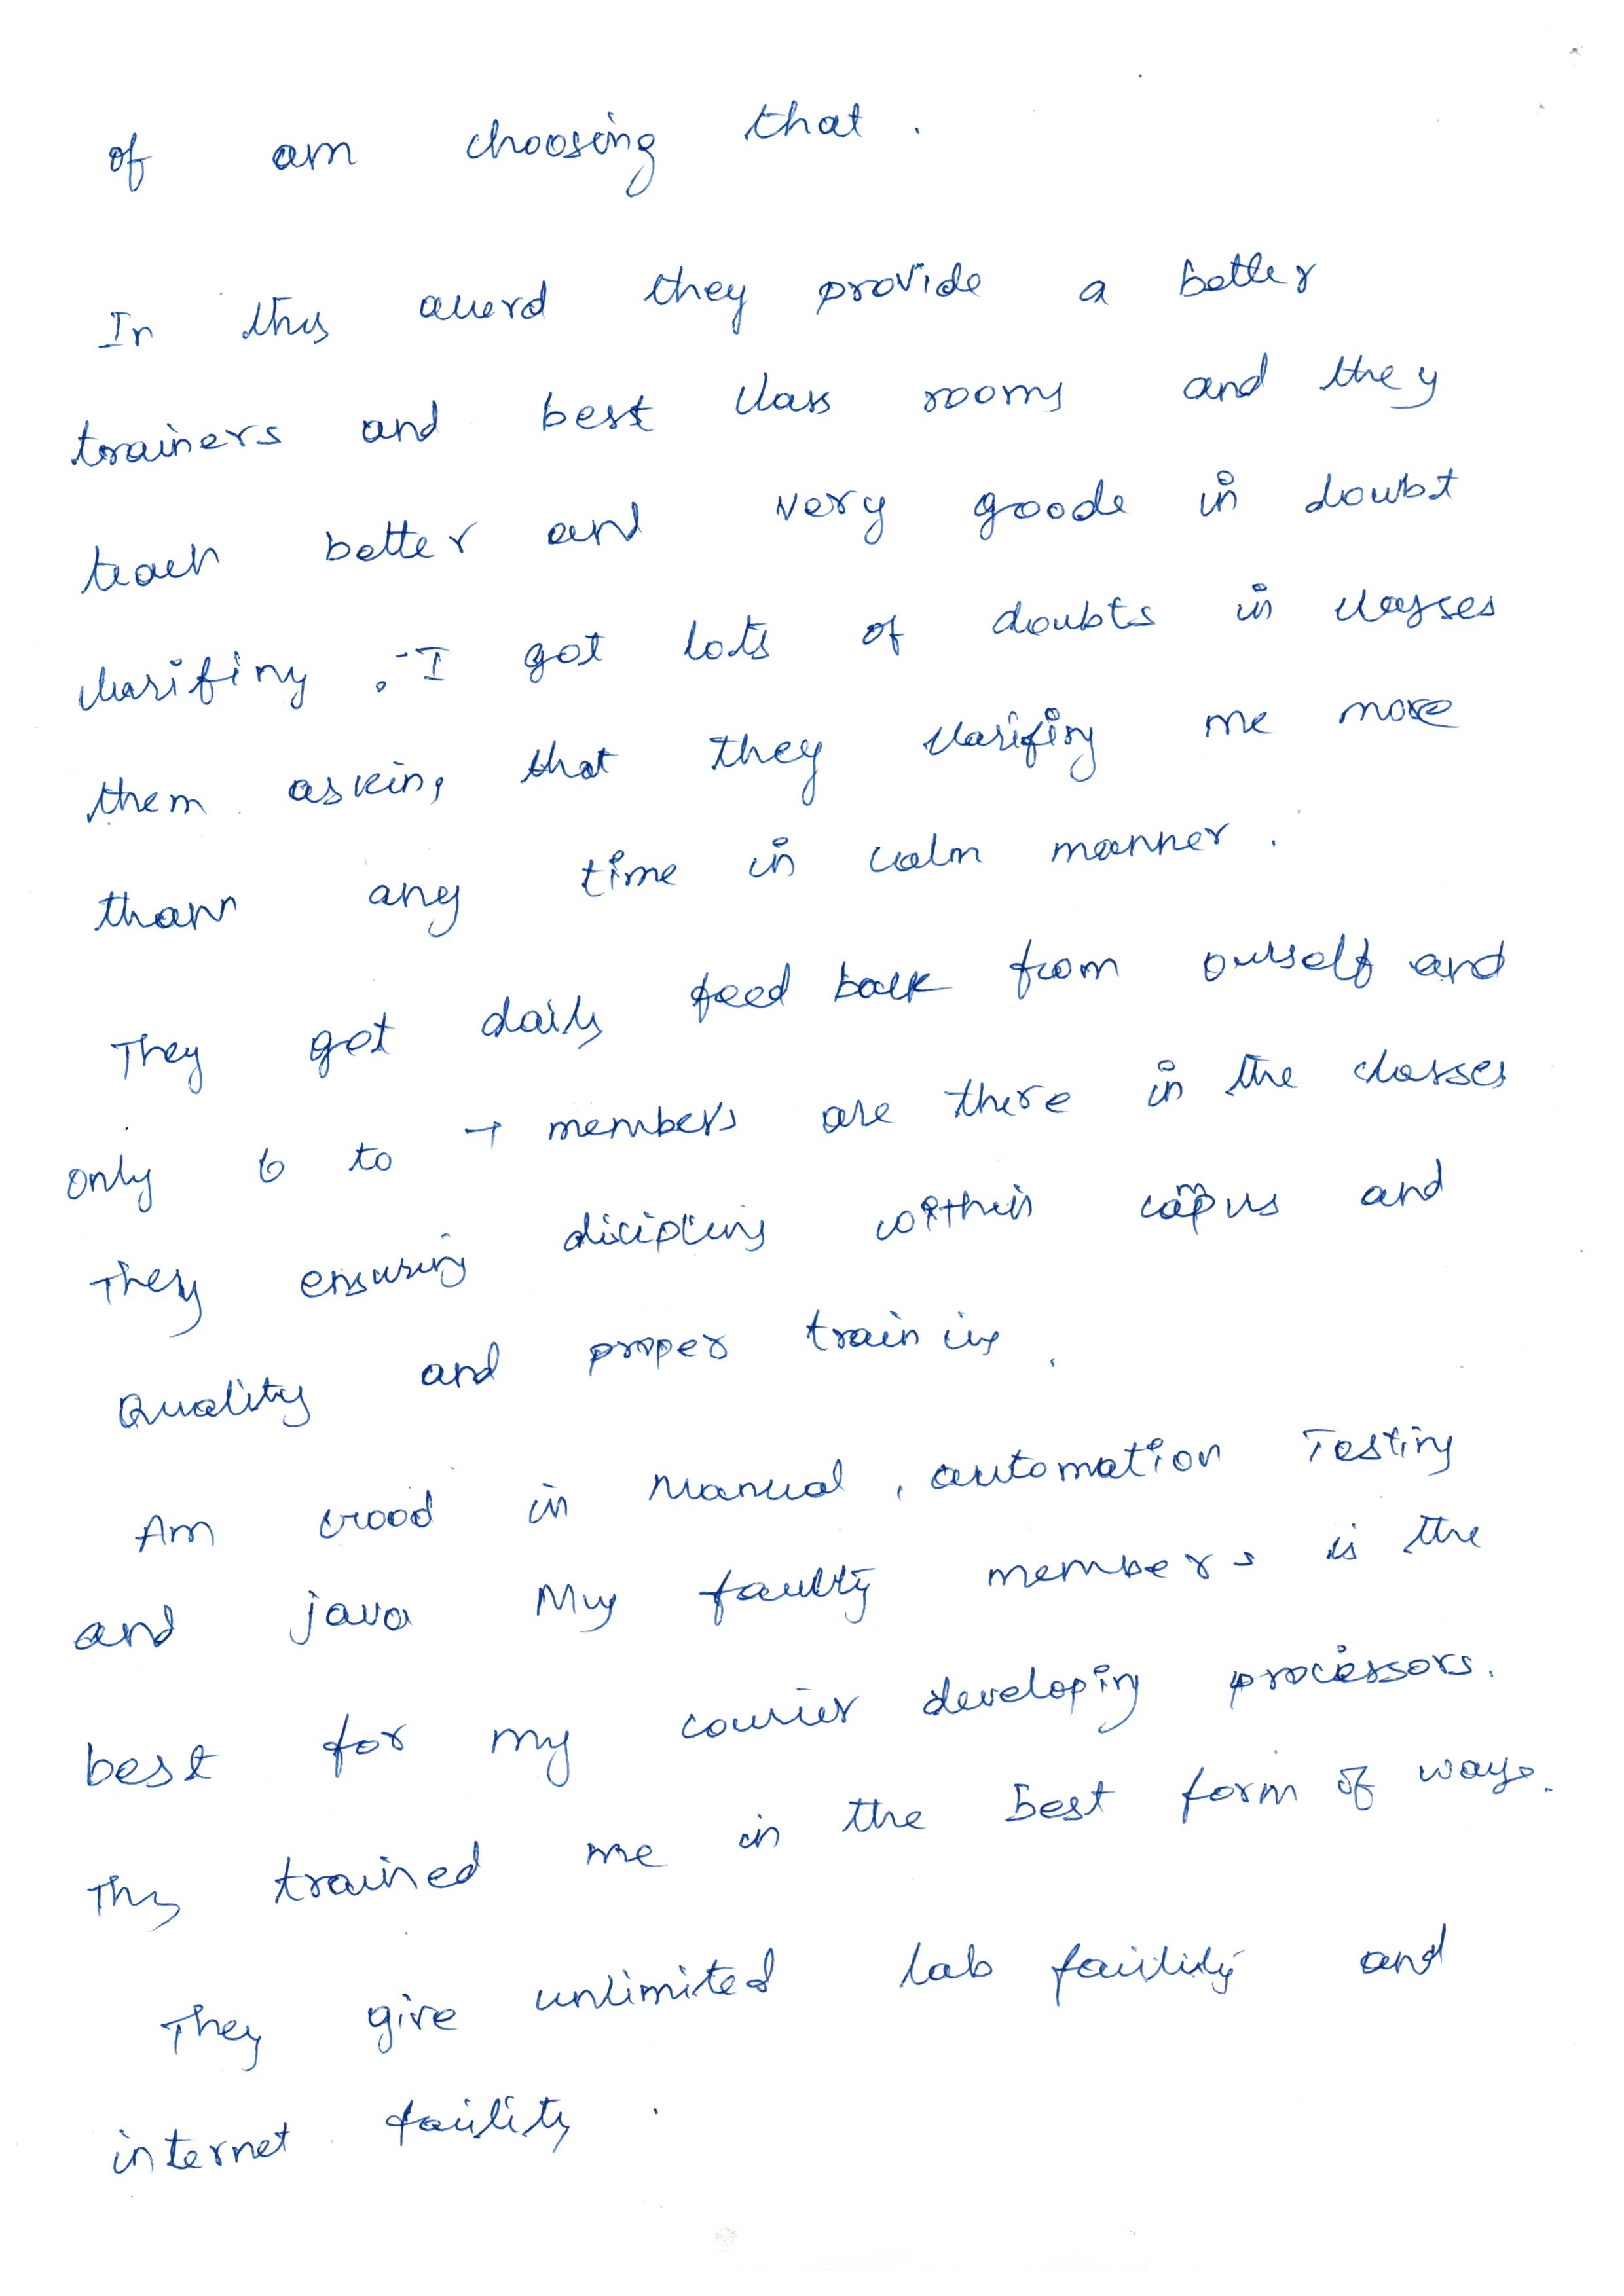 of am choosing that.
In this accerd they provide a better
trainers and best class rooms and they
teach better and very goode in doubt
clarifiny. I got lots of doubts in classes
them asking that they clarifing me more
than any time in calm manner.
They get daily feed back from ourself and
only 6 to 7 members are there in the classes
They ensuring discipling within campus and
Quality and proper training.
Am Good in Manual, automation Testing
and java My faculty members is the
best for my courier developing processors.
They trained me in the best form of ways.
They give unlimited lab facility and
internet facility.